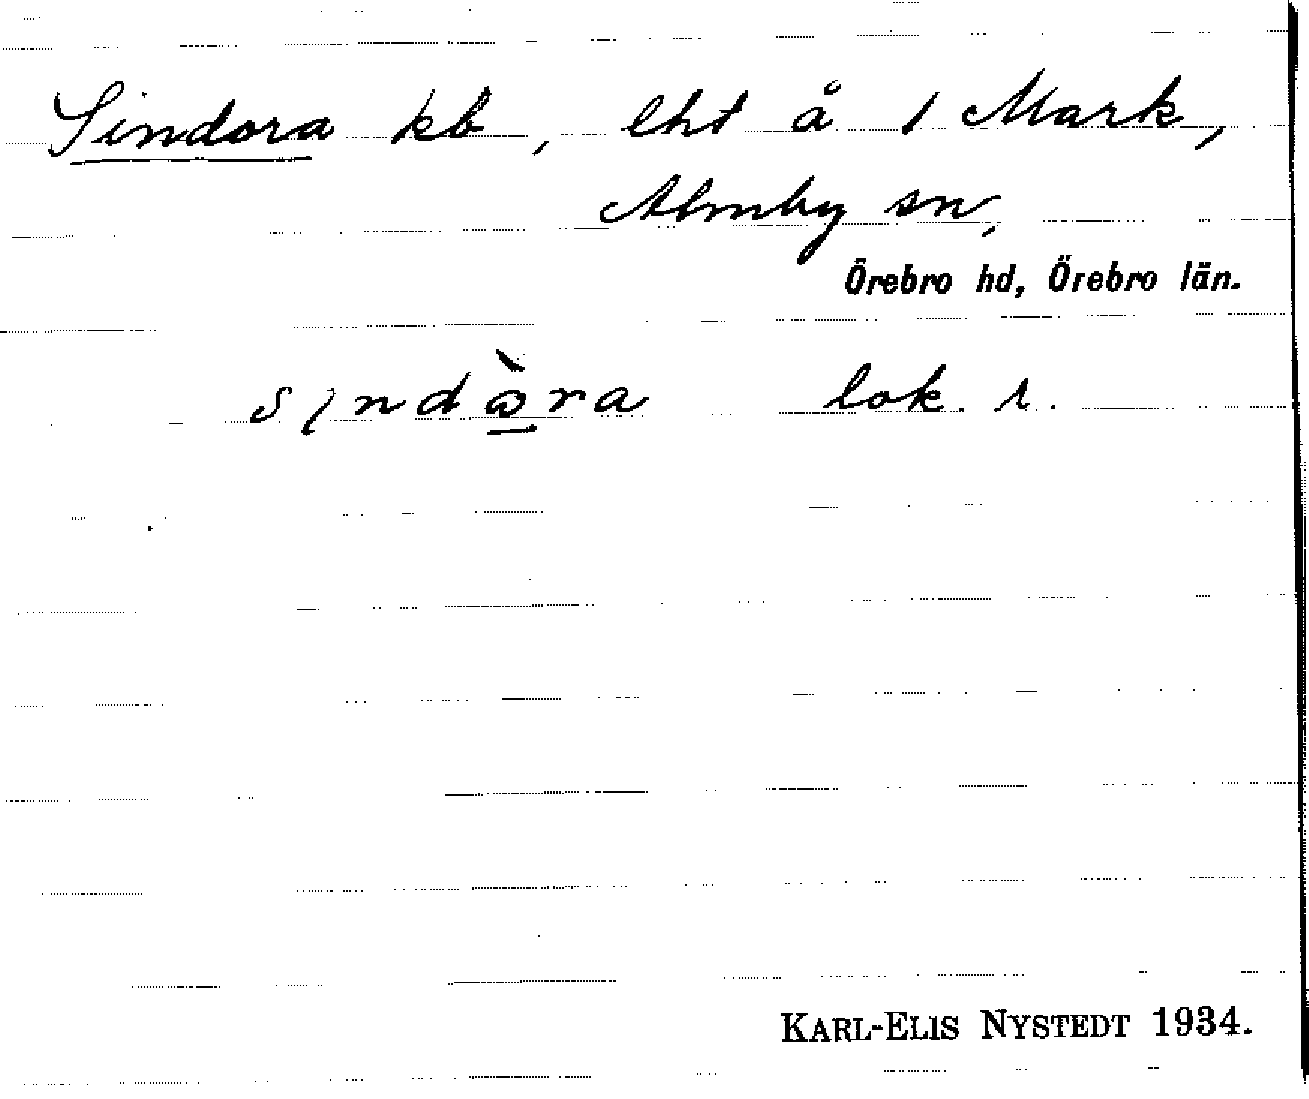 Sindora kb, lht å 1 Mark,
Almby sn,
Örebro hd, Örebro län.
sɩndɔ̀ra lok. r.
KARL-ELIS NYSTEDT 1934.